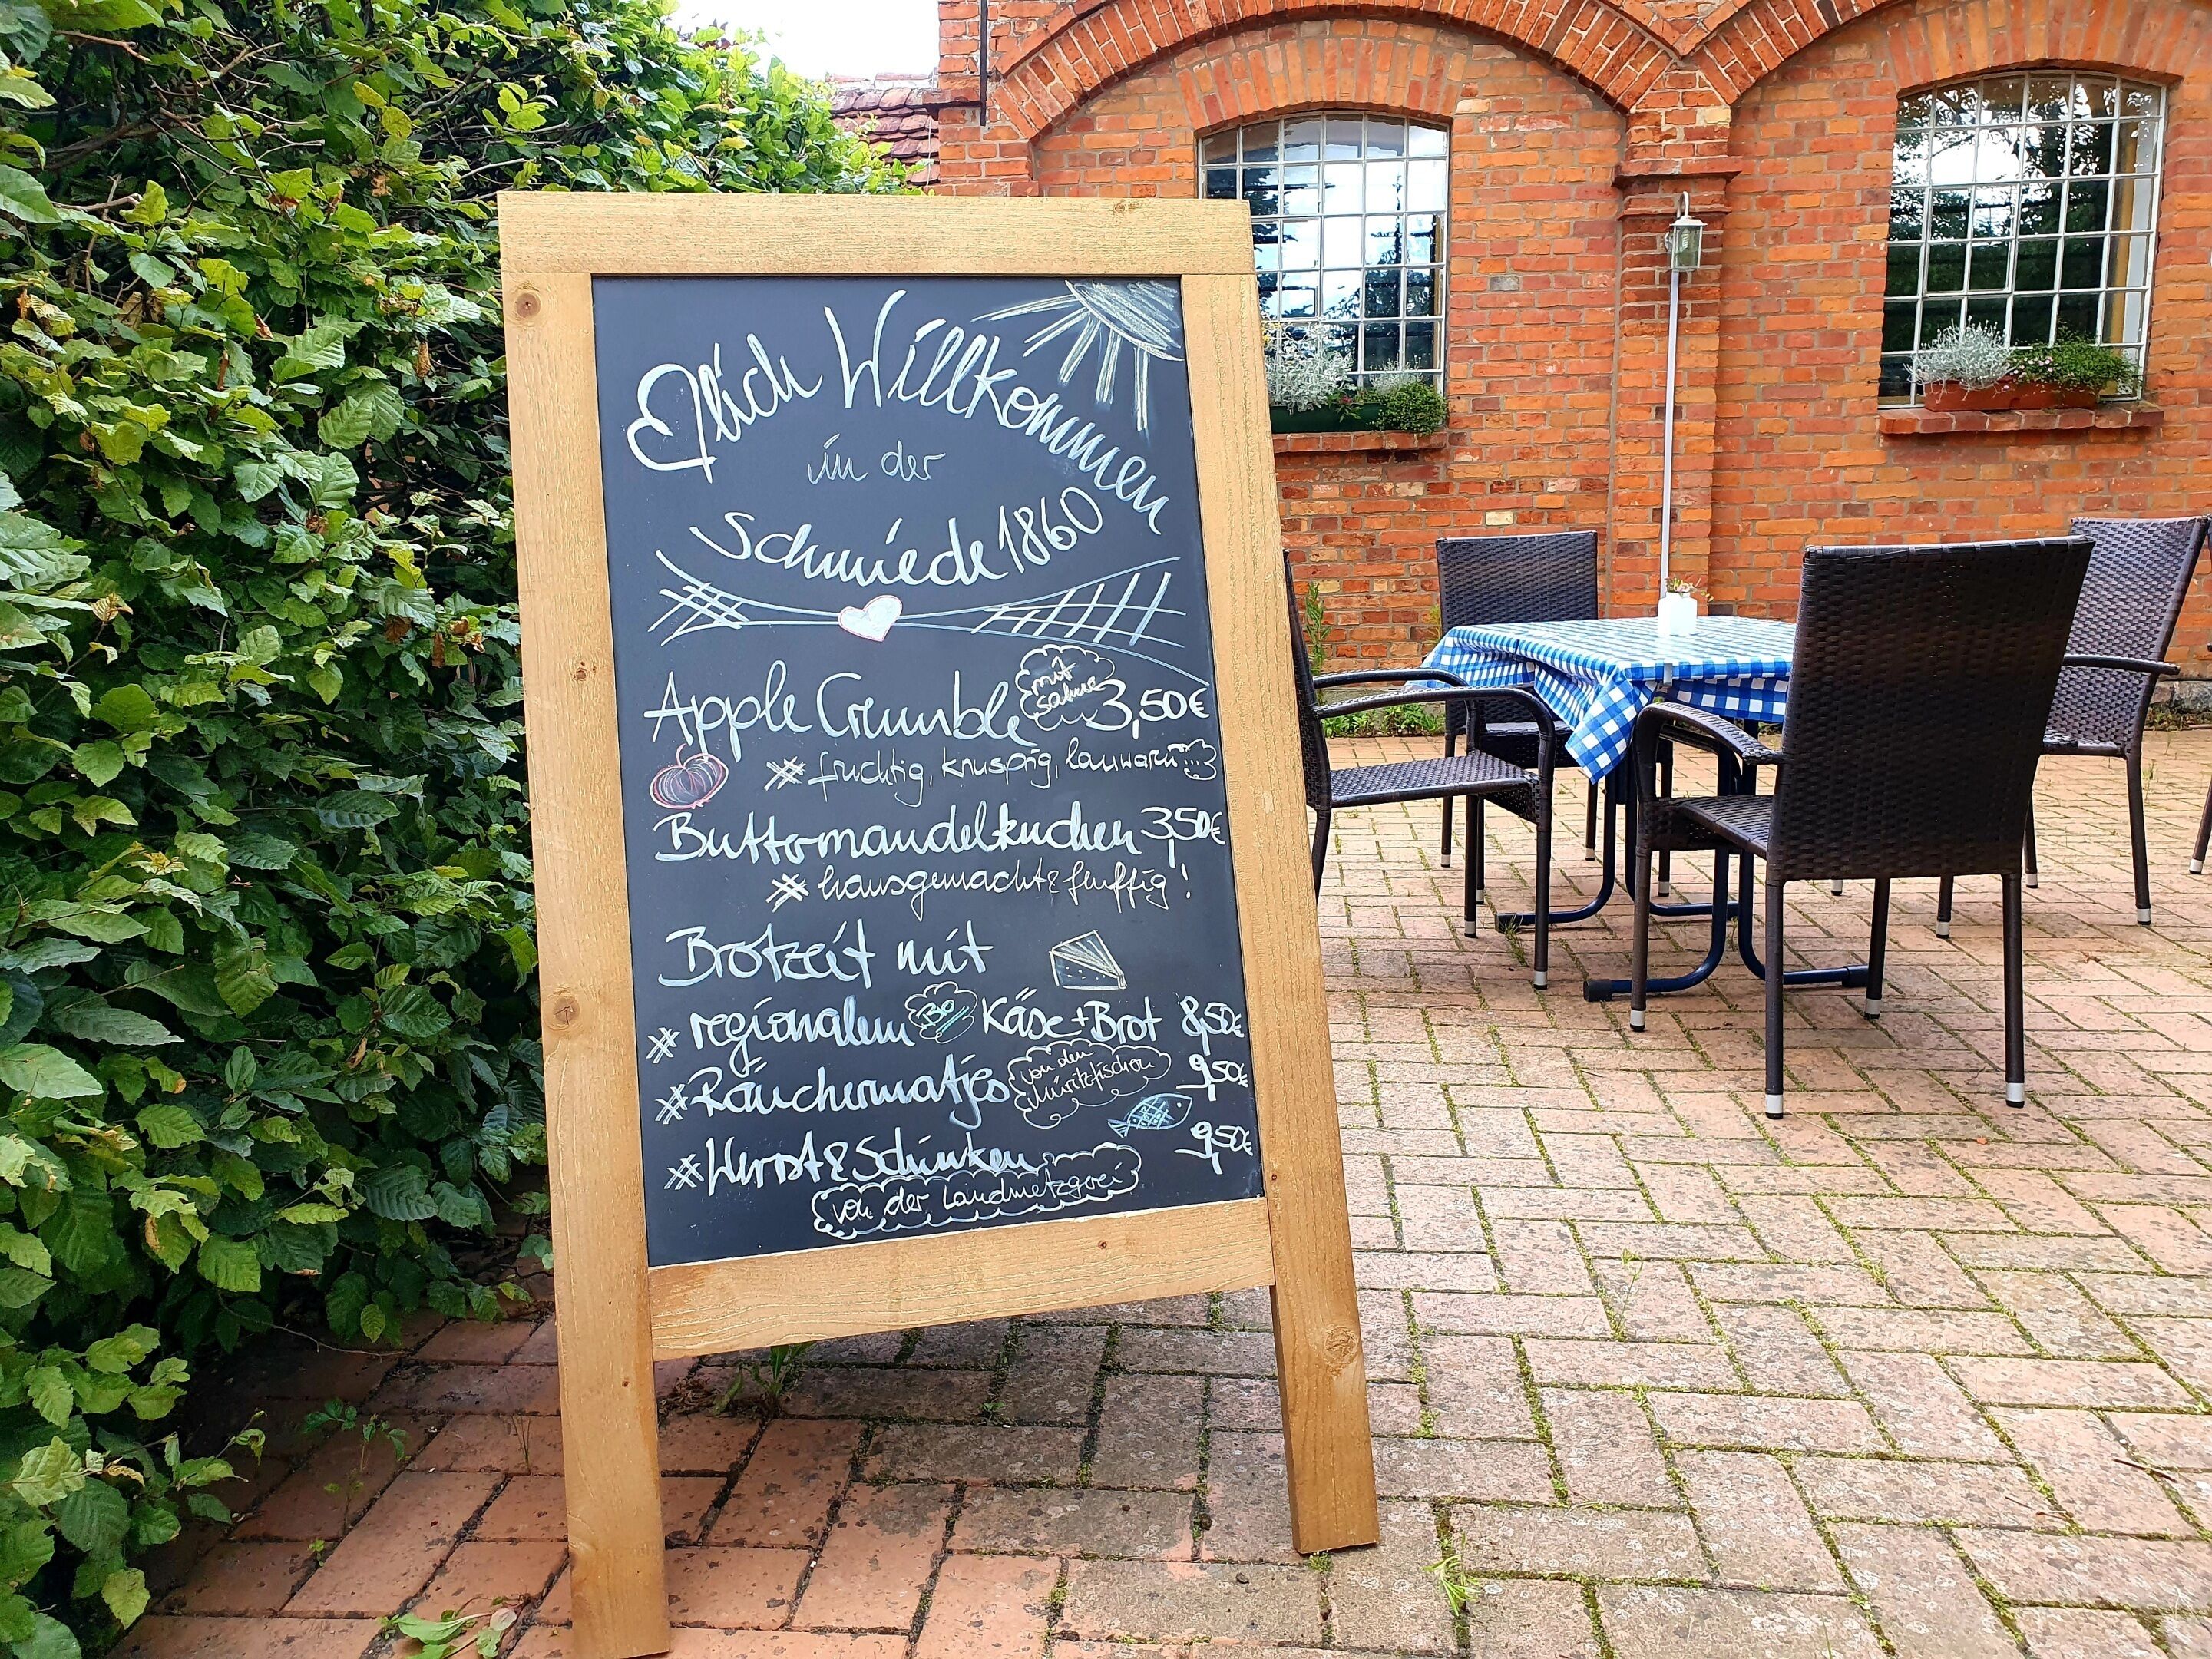 Erlich Willkommen
in der
Schmiede 1860
Apple Crumble mit Sahne 3,50€
# fruchtig, knusprig, lauwarm
Buttermandelkuchen 3,50€
# hausgemacht & fluffig!
Brotzeit mit
# regionalem Bio Käse + Brot 8,50€
# Räuchermatjes von den Müritzfischern 9,50€
# Wurst & Schinken 9,50€
von der Landmetzgerei